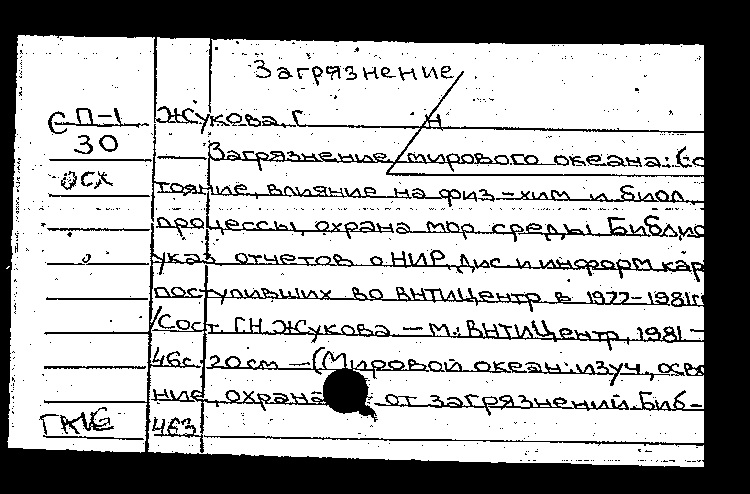 Загрязнение
С П-1 Жукова, Г Н
30
Загрязнение мирового океана: Сос
осх тояние, влияние на физ-хим и биол.
процессы, охрана мор среды. Библио
указ отчетов о НИР, дис и информ кар
поступивших во ВНТИЦентр в 1977-1981гг
/Сост. Г.Н. Жукова — М.: ВНТИЦентр, 1981 —
46с; 20см — (Мировой океан: изуч., осво
ние, охрана от загрязнений. Биб-
463